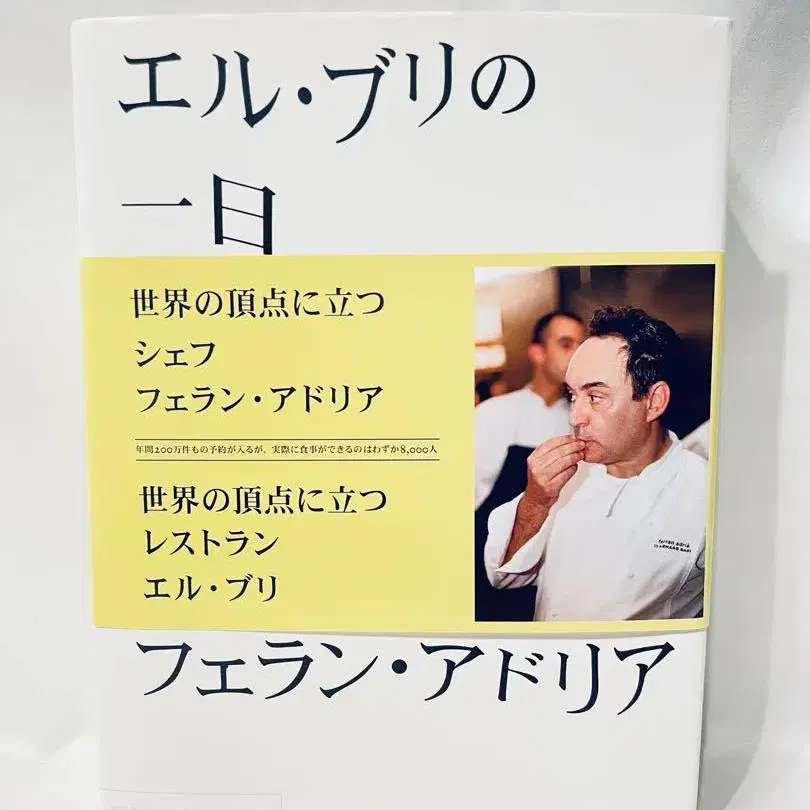 エル・ブリの
一日
世界の頂点に立つ
シェフ
フェラン・アドリア
年間200万件もの予約が入るが、実際に食事ができるのはわずか8,000人
世界の頂点に立つ
レストラン
エル・ブリ
ferran adrià
フェラン・アドリア